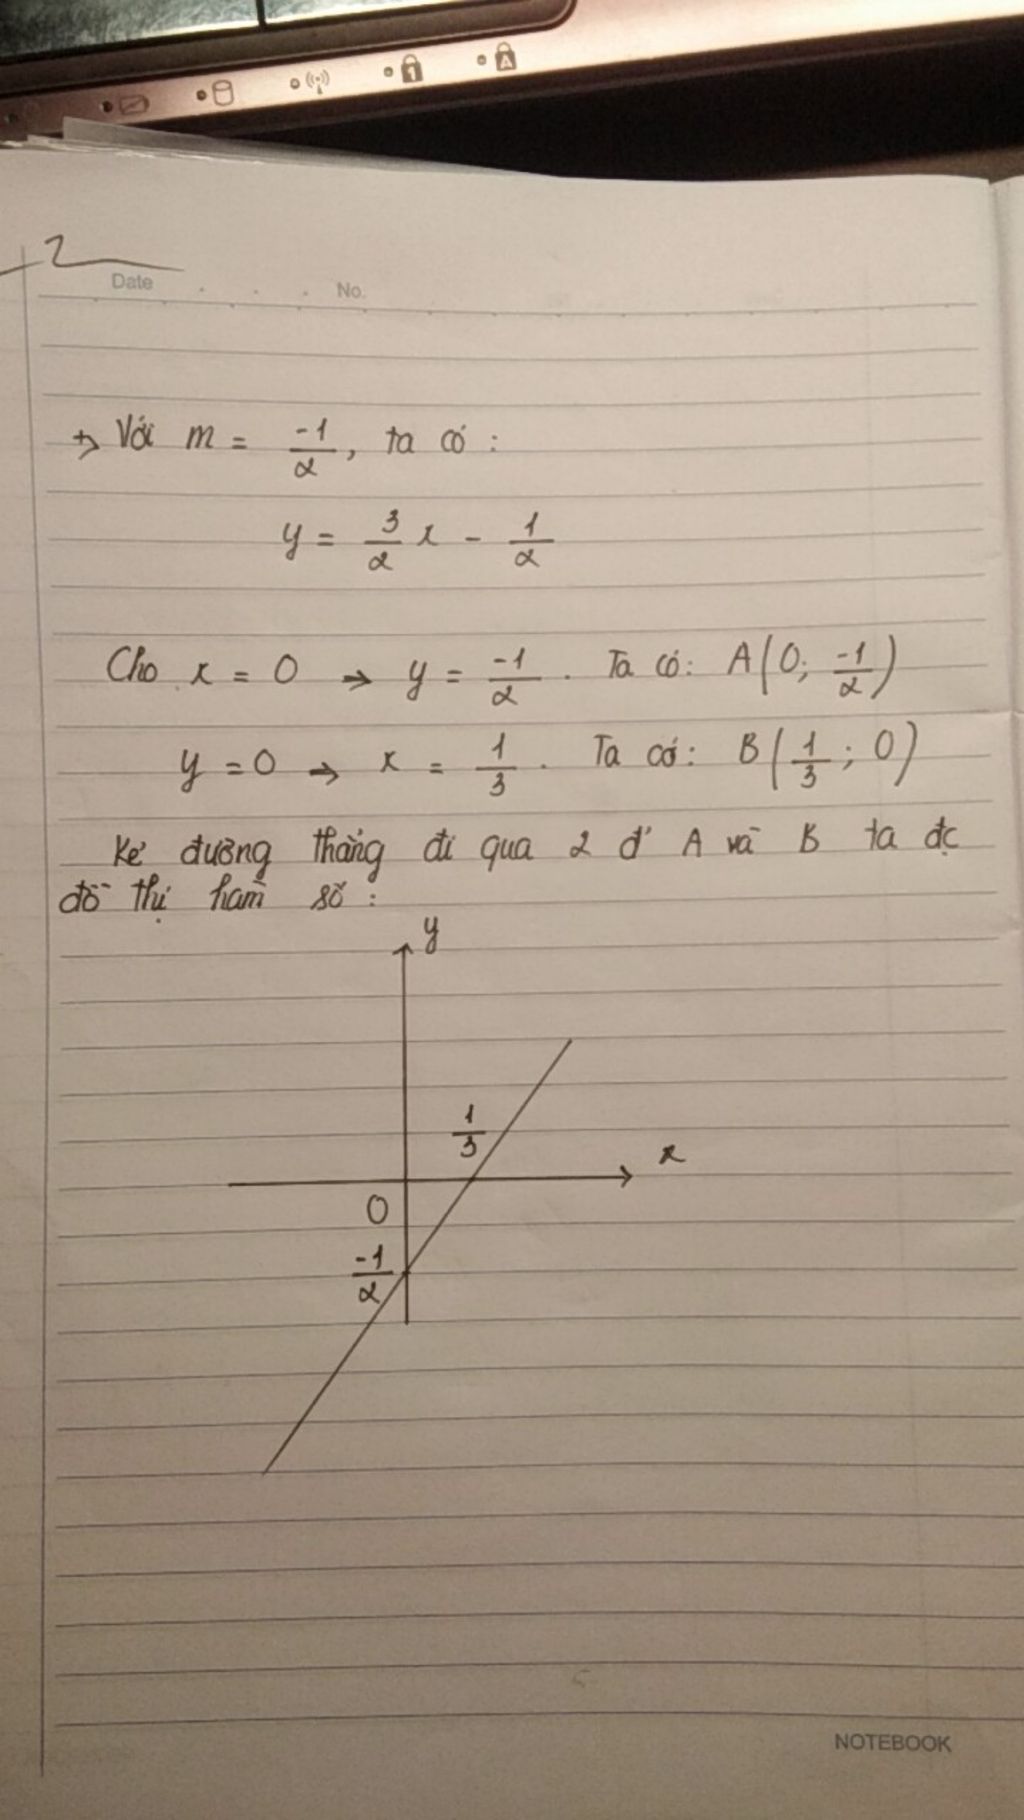 2
Date No.
+> Với m = -1/2, ta có:
y = 3/2 x - 1/2
Cho x = 0 → y = -1/2. Ta có: A(0; -1/2)
y = 0 → x = 1/3. Ta có: B(1/3; 0)
Kẻ đường thẳng đi qua 2 đ' A và B ta đc
đồ thị hàm số:
y
1/3
x
0
-1/2
NOTEBOOK